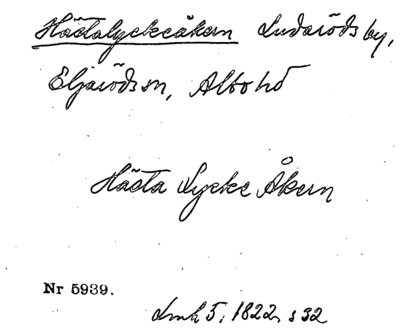 Hästalyckeåkern Ludaröds by,
Eljaröds sn, Albo hd
Hästa Lycke Åkern
Nr 5939.
Lmk 5, 1822, s 32